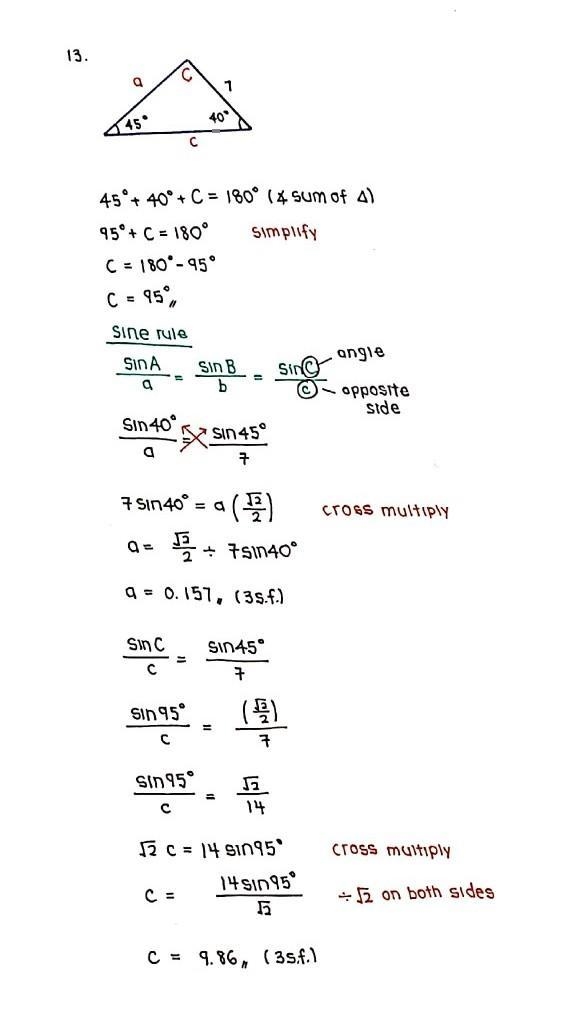 13.
a
C
7
45°
40°
c
45° + 40° + C = 180° (∡ sum of Δ)
95° + C = 180° simplify
C = 180° - 95°
C = 95°,,
sine rule
sinA/a = sinB/b = sinC/c
angle
opposite
side
sin40°/a = sin45°/7
7sin40° = a (√2/2) cross multiply
a = √2/2 ÷ 7sin40°
a = 0.157,, (3s.f.)
sinC/c = sin45°/7
sin95°/c = (√2/2)/7
sin95°/c = √2/14
√2 c = 14sin95° cross multiply
c = 14sin95°/√2 ÷√2 on both sides
c = 9.86,, (3s.f.)